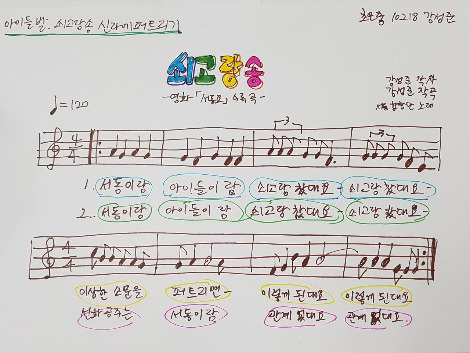 아이들 발. 쇠고랑송 신라에 퍼트리기
10218 강성준
쇠고랑송
- 영화 「서동요」 수록곡 -
강성준 작사
강성준 작곡
♩=120
3 3
4 4
1. 서동이랑 아이들이랑 쇠고랑 찼대요- 쇠고랑 찼대요-
2. 서동이랑 아이들이랑 쇠고랑 찼대요- 쇠고랑 찼대요-
4 4
이상한 소문을 퍼트리면- 이렇게 된대요 이렇게 된대요
선화공주는 서동이랑 관계 없대요 관계 없대요